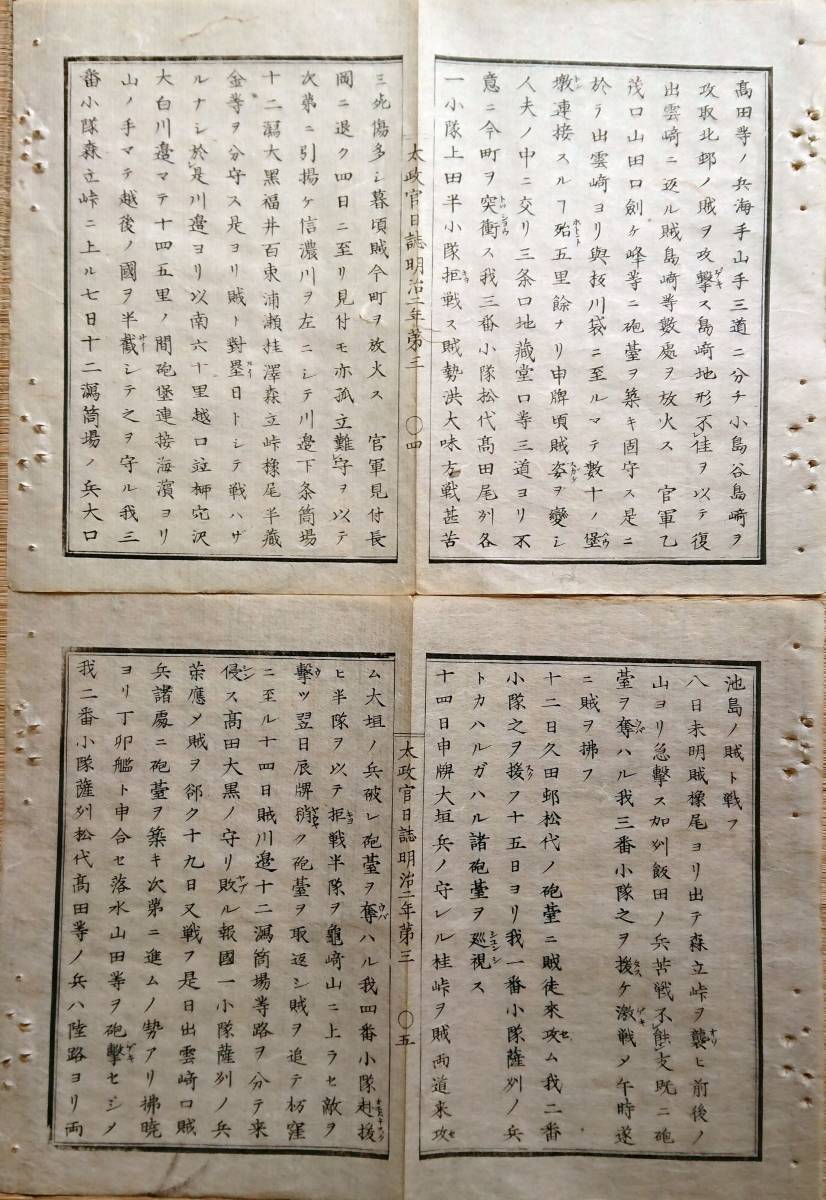 高田等ノ兵海手山手三道ニ分チ小島谷島﨑ヲ
攻取北邨ノ賊ヲ攻擊ス島﨑地形不佳ヲ以テ復
出雲﨑ニ返ル賊島﨑等數處ヲ放火ス 官軍乙
茂口山田口劍ケ峰等ニ砲䑓ヲ築キ固守ス是ニ
於テ出雲﨑ヨリ與板川袋ニ至ルマテ數十ノ堡
墩連接スルヿ殆五里餘ナリ申牌頃賊姿ヲ變シ
人夫ノ中ニ交リ三条口地藏堂口等三道ヨリ不
意ニ今町ヲ突衝ス我三番小隊松代高田尾刕各
一小隊上田半小隊拒戦ス賊勢洪大味方戦甚苦
太政官日誌明治二年第三 〇四
ミ死傷多シ暮頃賊今町ヲ放火ス 官軍見付長
岡ニ退ク四日ニ至リ見付モ亦孤立難守ヲ以テ
次第ニ引揚ケ信濃川ヲ左ニシテ川邉下条筒場
十二潟大黒福井百束浦瀬桂澤森立峠椽尾半藏
金等ヲ分守ス是ヨリ賊ト對壘日トシテ戦ハザ
ルナシ於是川邉ヨリ以南六十里越口並栁宂沢
大白川邉マテ十四五里ノ間砲堡連接海濵ヨリ
山ノ手マテ越後ノ國ヲ半截シテ之ヲ守ル我三
番小隊森立峠ニ上ル七日十二潟筒場ノ兵大口
池島ノ賊ト戦フ
八日未明賊橡尾ヨリ出テ森立峠ヲ襲ヒ前後ノ
山ヨリ急擊ス加刕飯田ノ兵苦戦不能支既ニ砲
䑓ヲ奪ハル我三番小隊之ヲ援ケ激戦〆午時遂
ニ賊ヲ拂フ
十二日久田邨松代ノ砲䑓ニ賊徒來攻ム我二番
小隊之ヲ援フ十五日ヨリ我一番小隊薩刕ノ兵
トカハルガハル諸砲䑓ヲ廵視ス
十四日申牌大垣兵ノ守レル桂峠ヲ賊両道来攻
太政官日誌明治二年第三 〇五
ム大垣ノ兵破レ砲䑓ヲ奪ハル我四番小隊赴援
ヒ半隊ヲ以テ拒戦半隊ヲ龜﨑山ニ上ラセ敵ヲ
擊ツ翌日辰牌稍ク砲䑓ヲ取返シ賊ヲ追テ杤窪
ニ至ル十四日賊川邉十二潟筒場等路ヲ分テ来
侵ス高田大黒ノ守リ敗ル報國一小隊薩刕ノ兵
策應〆賊ヲ郤ク十九日又戦フ是日出雲﨑口賊
兵諸處ニ砲䑓ヲ築キ次第ニ進ムノ勢アリ拂暁
ヨリ丁卯艦ト申合セ落水山田等ヲ砲擊セシ〆
我二番小隊薩刕松代高田等ノ兵ハ陸路ヨリ両